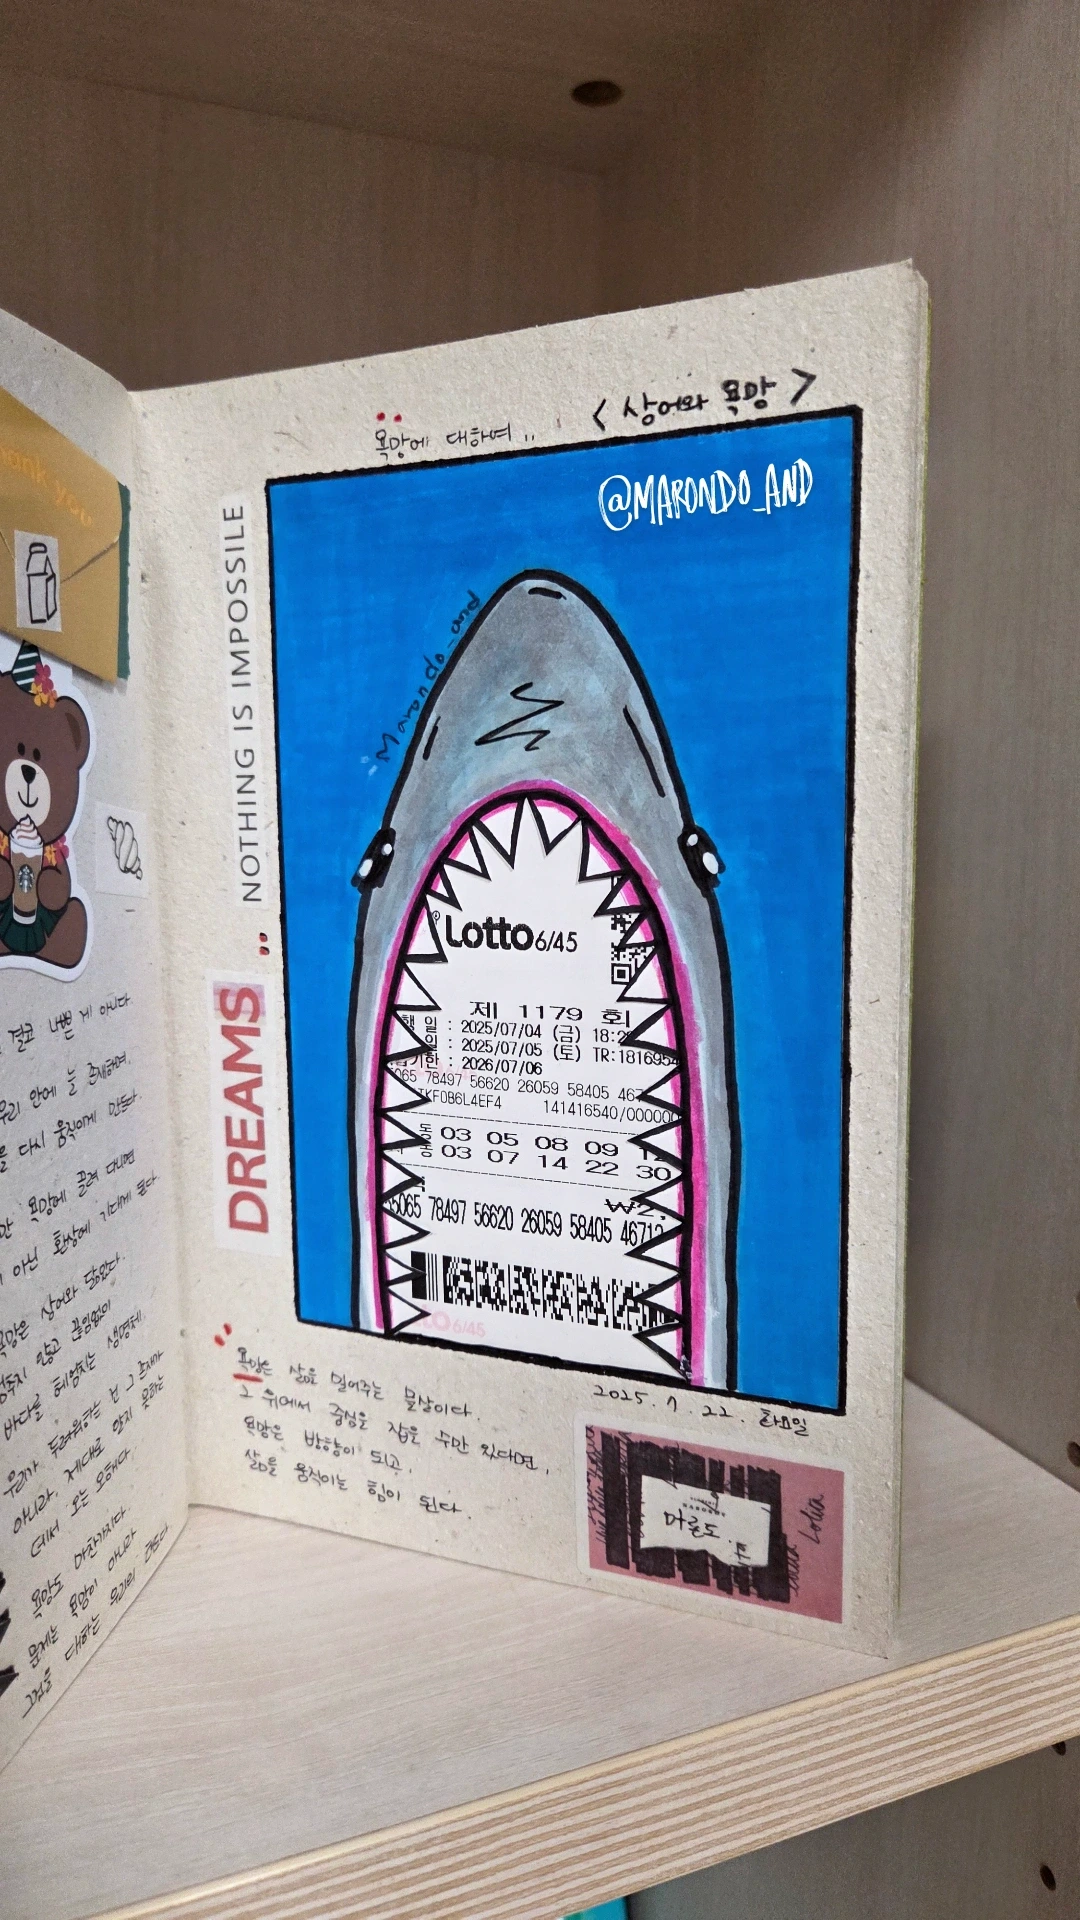 Thank you
결코 나쁜 게 아니다.
우리 안에 늘 존재하며,
다시 움직이게 만든다.
욕망에 끌려 다니면
아닌 환상에 기대게 된다
욕망은 상어와 닮았다.
멈추지 않고 끊임없이
바다를 헤엄치는 생명체.
우리가 두려워하는 건 그 존재가
아니라, 제대로 알지 못하는
데서 오는 오해다.
욕망도 마찬가지다.
문제는 욕망이 아니라
그것을 대하는 우리의 태도다
욕망에 대하여..
< 상어와 욕망 >
@MARONDO_AND
Marondo_and
NOTHING IS IMPOSSILE
DREAMS
Lotto 6/45
제 1179 회
행 일 : 2025/07/04 (금) 18:2
일 : 2025/07/05 (토) TR:1816954
기한 : 2026/07/06
5065 78497 56620 26059 58405 467
TKF0B6L4EF4 141416540/000000
동 03 05 08 09 12
동 03 07 14 22 30
₩2,
5065 78497 56620 26059 58405 46712
6/45
욕망은 삶을 밀어주는 물살이다.
그 위에서 중심을 잡을 수만 있다면,
욕망은 방향이 되고,
삶을 움직이는 힘이 된다.
2025. 7. 22. 화요일
마론도
Lolia